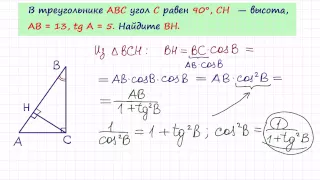 В треугольнике ABC угол C равен 90°, CH — высота,
AB = 13, tg A = 5. Найдите BH.
Из △BCH: BH = BC · cosB =
AB·cosB
= AB·cosB·cosB = AB·cos²B =
= AB / (1 + tg²B)
1/cos²B = 1 + tg²B ; cos²B = 1/(1+tg²B)
B
H
A
C